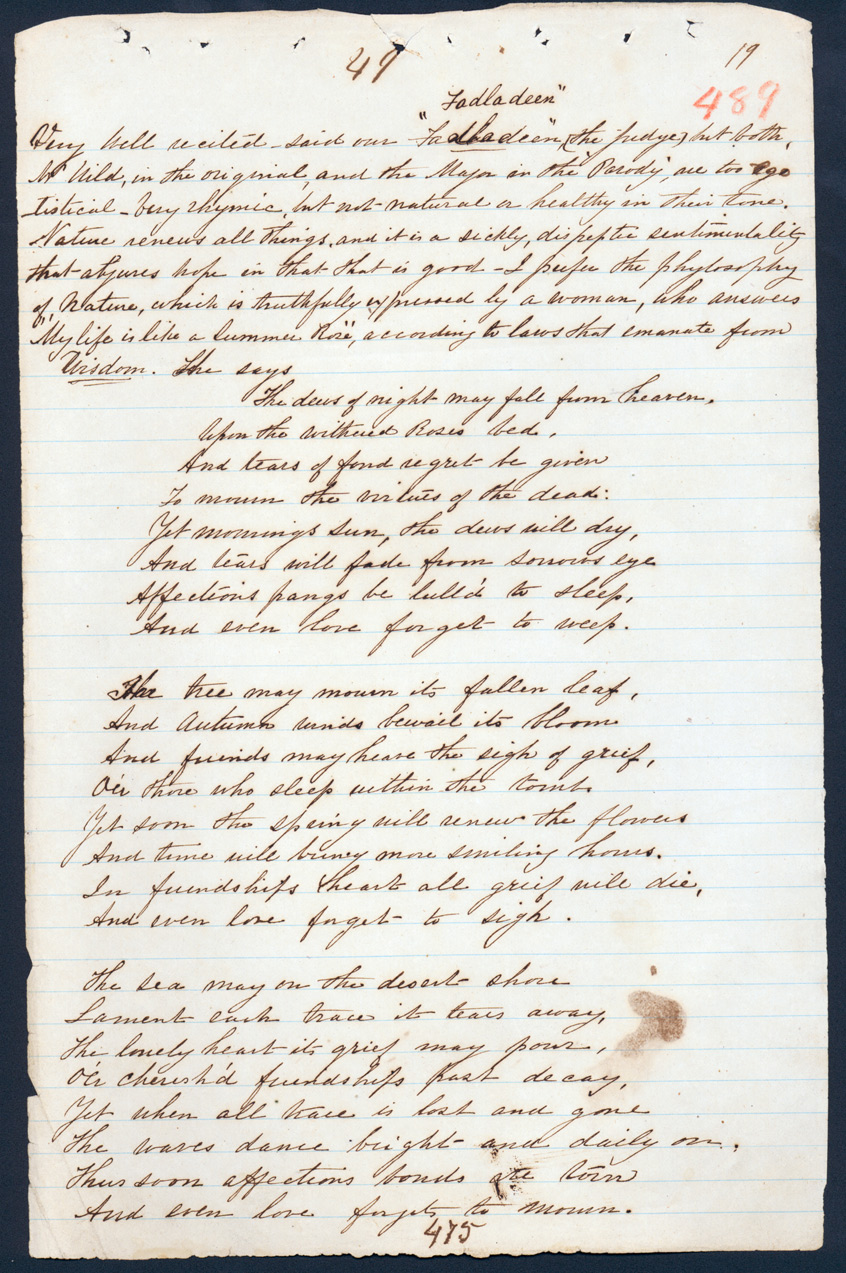 49
19
489
"Fadladeen"
Very well recited - said our "Fadladeen", (the judge) but both,
Mr Wild, in the original, and the Major in the "Parody" are too ego
tistical - Very rhymic, but not natural or healthy in their tone.
Nature renews all things, and it is a sickly, dispeptic sentimentality
that abjures hope in that that is good - I prefer the phylosophy
of Nature, which is truthfully expressed by a woman, who answers
"My life is like a Summer Rose", according to laws that emanate from
Wisdom. She says
The dews of night may fall from heaven,
Upon the withered Roses bed,
And tears of fond regret be given
To mourn the virtues of the dead:
Yet mornings sun, the dews will dry,
And tears will fade from sorrows eye
Affections pangs be lull'd to sleep,
And even love forget to weep.
The tree may mourn its fallen leaf,
And Autumn winds bewail its bloom
And friends may heave the sigh of grief,
O'er those who sleep within the tomb.
Yet soon the spring will renew the flowers
And time will bring more smiling hours.
In friendships heart all grief will die,
And even love forget to sigh.
The sea may on the desert shore
Lament each trace it tears away,
The lonely heart its grief may pour,
O'er cherish'd friendships fast decay,
Yet when all trace is lost and gone
The waves dance bright and daily on,
Thus soon affections bonds are torn
And even love forgets to mourn.
475